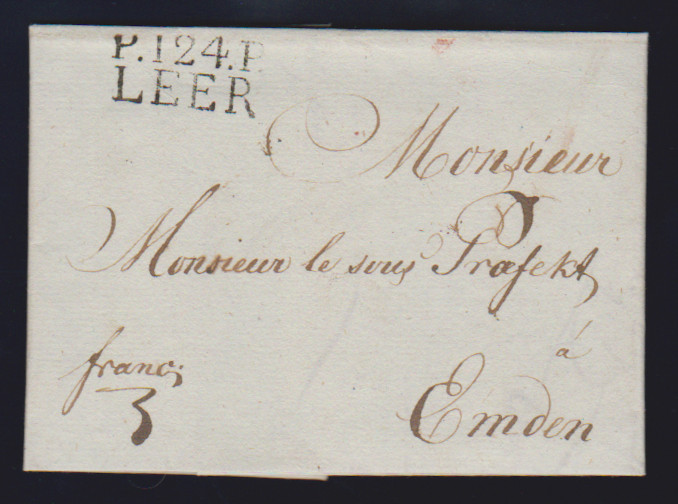 P.124.P.
LEER
Monsieur
Monsieur le sous Præfekt
á
Emden
franc:
3